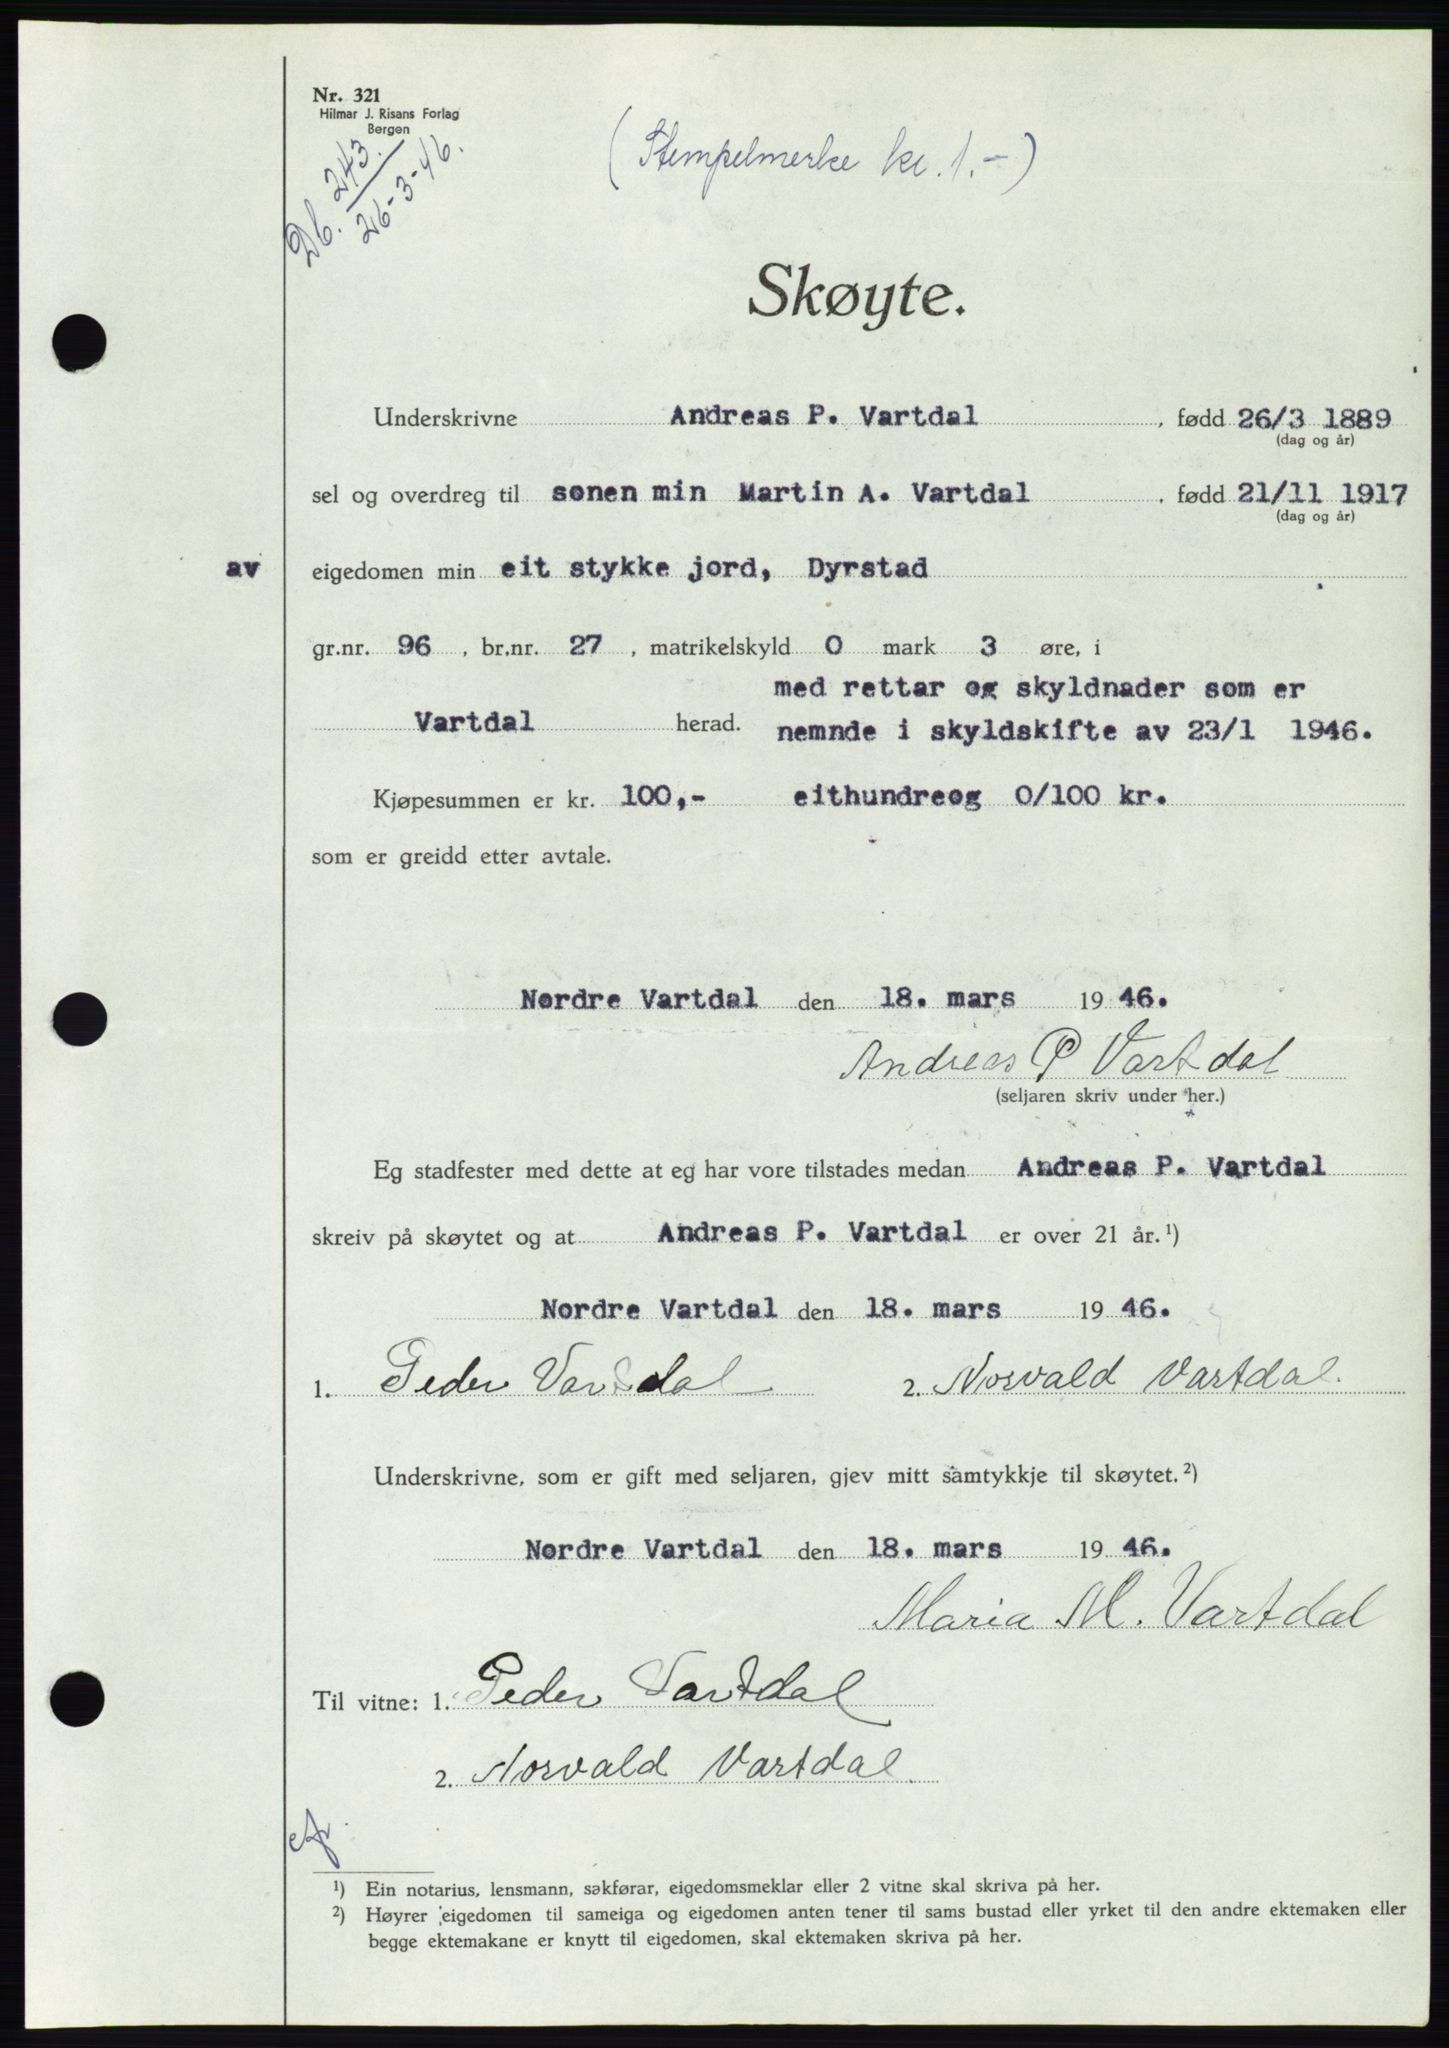 Nr. 321
Hilmar J. Risans Forlag
Bergen
Db. 243.
26-3-46.
(Stempelmerke kr. 1.-)
Skøyte.
Underskrivne Andreas P. Vartdal , fødd 26/3 1889
(dag og år)
sel og overdreg til sønen min Martin A. Vartdal , fødd 21/11 1917
(dag og år)
av eigedomen min eit stykke jord, Dyrstad
gr.nr. 96 , br.nr. 27 , matrikelskyld 0 mark 3 øre, i
med rettar og skyldnader som er
Vartdal herad. nemnde i skyldskifte av 23/1 1946.
Kjøpesummen er kr. 100,- eithundreog 0/100 kr.
som er greidd etter avtale.
Nordre Vartdal den 18. mars 19 46.
Andreas P Vartdal
(seljaren skriv under her.)
Eg stadfester med dette at eg har vore tilstades medan Andreas P. Vartdal
skreiv på skøytet og at Andreas P. Vartdal er over 21 år.¹)
Nordre Vartdal den 18. mars 19 46.
1. Peder Vartdal 2. Norvald Vartdal.
Underskrivne, som er gift med seljaren, gjev mitt samtykkje til skøytet.²)
Nordre Vartdal den 18. mars 19 46.
Maria M. Vartdal
Til vitne: 1. Peder Vartdal
2. Norvald Vartdal.
¹) Ein notarius, lensmann, sakførar, eigedomsmeklar eller 2 vitne skal skriva på her.
²) Høyrer eigedomen til sameiga og eigedomen anten tener til sams bustad eller yrket til den andre ektemaken eller
begge ektemakane er knytt til eigedomen, skal ektemaken skriva på her.